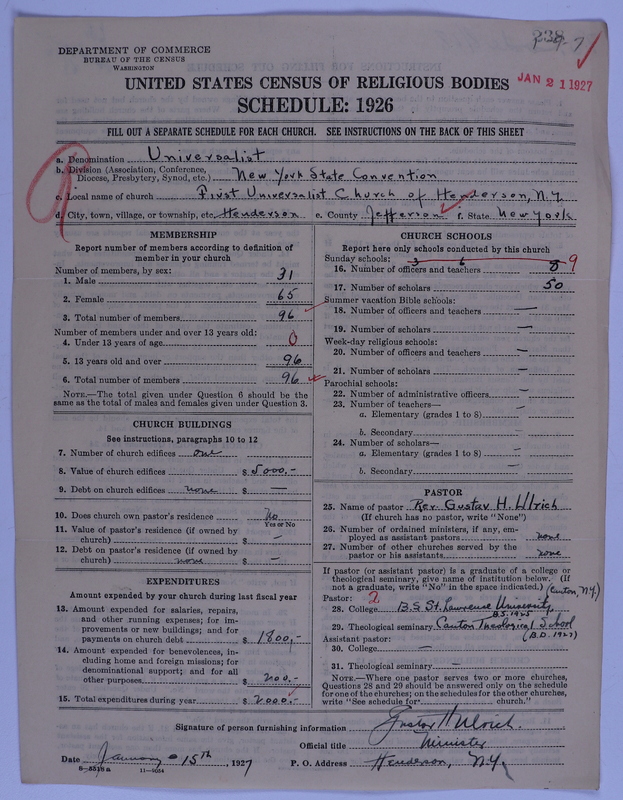 DEPARTMENT OF COMMERCE
BUREAU OF THE CENSUS
WASHINGTON
UNITED STATES CENSUS OF RELIGIOUS BODIES
JAN 21 1927
SCHEDULE: 1926
FILL OUT A SEPARATE SCHEDULE FOR EACH CHURCH. SEE INSTRUCTIONS ON THE BACK OF THIS SHEET
a. Denomination Universalist
b. Division (Association, Conference,
Diocese, Presbytery, Synod, etc.) New York State Convention
c. Local name of church First Universalist Church of Henderson, N.Y.
d. City, town, village, or township, etc. Henderson e. County Jefferson f. State New York
MEMBERSHIP
Report number of members according to definition of
member in your church
Number of members, by sex:
1. Male 31
2. Female 65
3. Total number of members 96
Number of members under and over 13 years old:
4. Under 13 years of age 0
5. 13 years old and over 96
6. Total number of members 96
NOTE.—The total given under Question 6 should be the
same as the total of males and females given under Question 3.
CHURCH BUILDINGS
See instructions, paragraphs 10 to 12
7. Number of church edifices one
8. Value of church edifices $ 5000.-
9. Debt on church edifices none $ —
10. Does church own pastor's residence No
Yes or No
11. Value of pastor's residence (if owned by
church) $ —
12. Debt on pastor's residence (if owned by
church) none $ —
EXPENDITURES
Amount expended by your church during last fiscal year
13. Amount expended for salaries, repairs,
and other running expenses; for im-
provements or new buildings; and for
payments on church debt $ 1800.-
14. Amount expended for benevolences, in-
cluding home and foreign missions; for
denominational support; and for all
other purposes $ 200.-
15. Total expenditures during year $ 2000.-
CHURCH SCHOOLS
Report here only schools conducted by this church
Sunday schools: 3 6
16. Number of officers and teachers 8 9
17. Number of scholars 50
Summer vacation Bible schools:
18. Number of officers and teachers —
19. Number of scholars —
Week-day religious schools:
20. Number of officers and teachers —
21. Number of scholars —
Parochial schools:
22. Number of administrative officers —
23. Number of teachers—
a. Elementary (grades 1 to 8) —
b. Secondary —
24. Number of scholars—
a. Elementary (grades 1 to 8) —
b. Secondary —
PASTOR
25. Name of pastor Rev. Gustav H. Ulrich
(If church has no pastor, write "None")
26. Number of ordained ministers, if any, em-
ployed as assistant pastors none
27. Number of other churches served by the
pastor or his assistants none
If pastor (or assistant pastor) is a graduate of a college or
theological seminary, give name of institution below. (If
not a graduate, write "No" in the space indicated.) (Canton, N.Y.)
Pastor: 2
28. College B.S. St. Lawrence University
B.S. 1925
29. Theological seminary Canton Theological School
(B.D. 1927)
Assistant pastor:
30. College —
31. Theological seminary —
NOTE.—Where one pastor serves two or more churches,
Questions 28 and 29 should be answered only on the schedule
for one of the churches; on the schedules for the other churches,
write "See schedule for church."
Signature of person furnishing information Gustav H. Ulrich
Official title Minister
Date January 15th, 1927 P. O. Address Henderson, N.Y.
8-5518a 11-9034